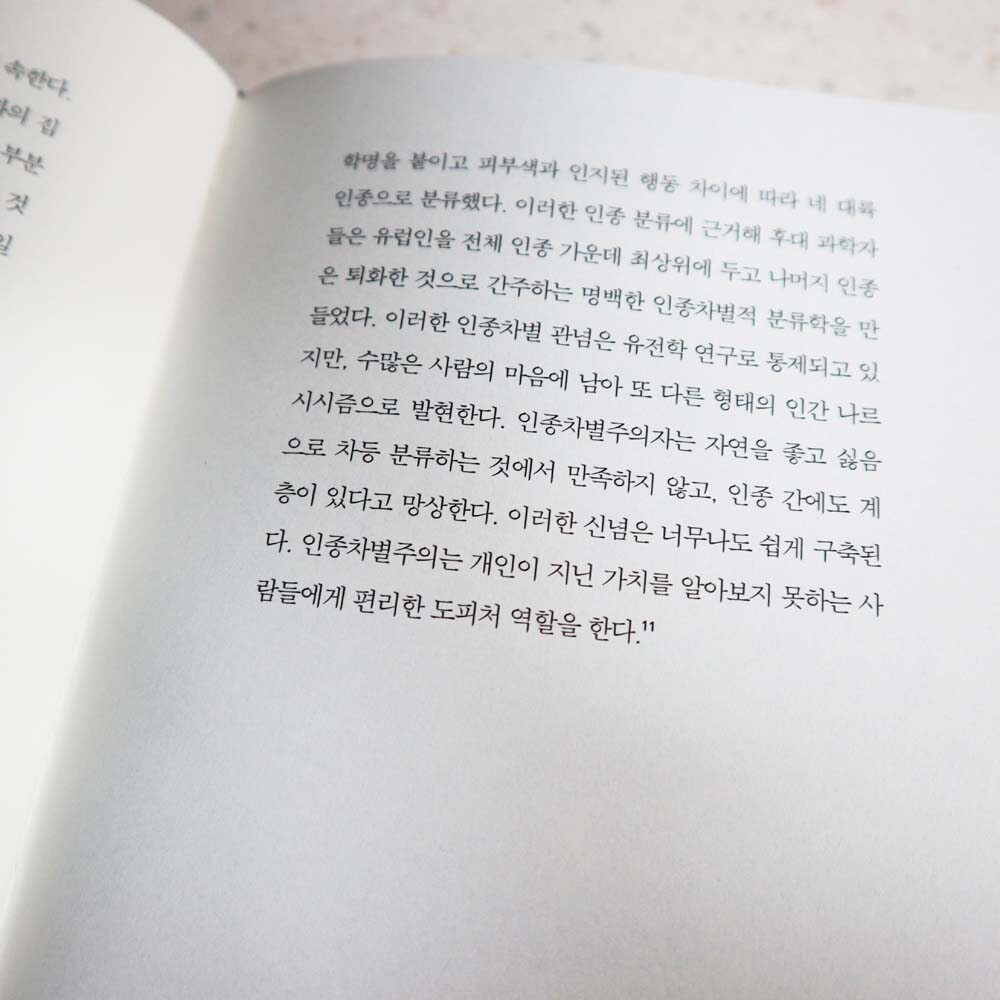 속한다.
의 집
부분
것
일
학명을 붙이고 피부색과 인지된 행동 차이에 따라 네 대륙
인종으로 분류했다. 이러한 인종 분류에 근거해 후대 과학자
들은 유럽인을 전체 인종 가운데 최상위에 두고 나머지 인종
은 퇴화한 것으로 간주하는 명백한 인종차별적 분류학을 만
들었다. 이러한 인종차별 관념은 유전학 연구로 통제되고 있
지만, 수많은 사람의 마음에 남아 또 다른 형태의 인간 나르
시시즘으로 발현한다. 인종차별주의자는 자연을 좋고 싫음
으로 차등 분류하는 것에서 만족하지 않고, 인종 간에도 계
층이 있다고 망상한다. 이러한 신념은 너무나도 쉽게 구축된
다. 인종차별주의는 개인이 지닌 가치를 알아보지 못하는 사
람들에게 편리한 도피처 역할을 한다.¹¹